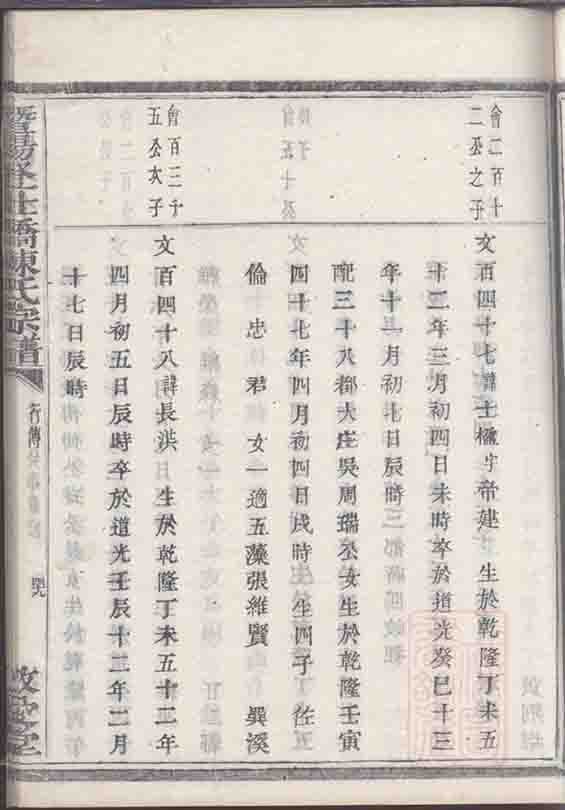 會二百十
二公之子
文百四十七諱士楹字帝建 生於乾隆丁未五
十二年三月初四日未時卒於道光癸巳十三
年十一月初七日辰時
配三十八都大庄吳周瑞公女生於乾隆壬寅
四十七年四月初四日戌時 生四子佐
倫 忠 君 女一適五藻張維賢 巽溪
會百三十
五公次子
文百四十八諱長洪 生於乾隆丁未五十二年
四月初五日辰時卒於道光壬辰十二年二月
十七日辰時
暨陽 橋陳氏宗譜
行傳